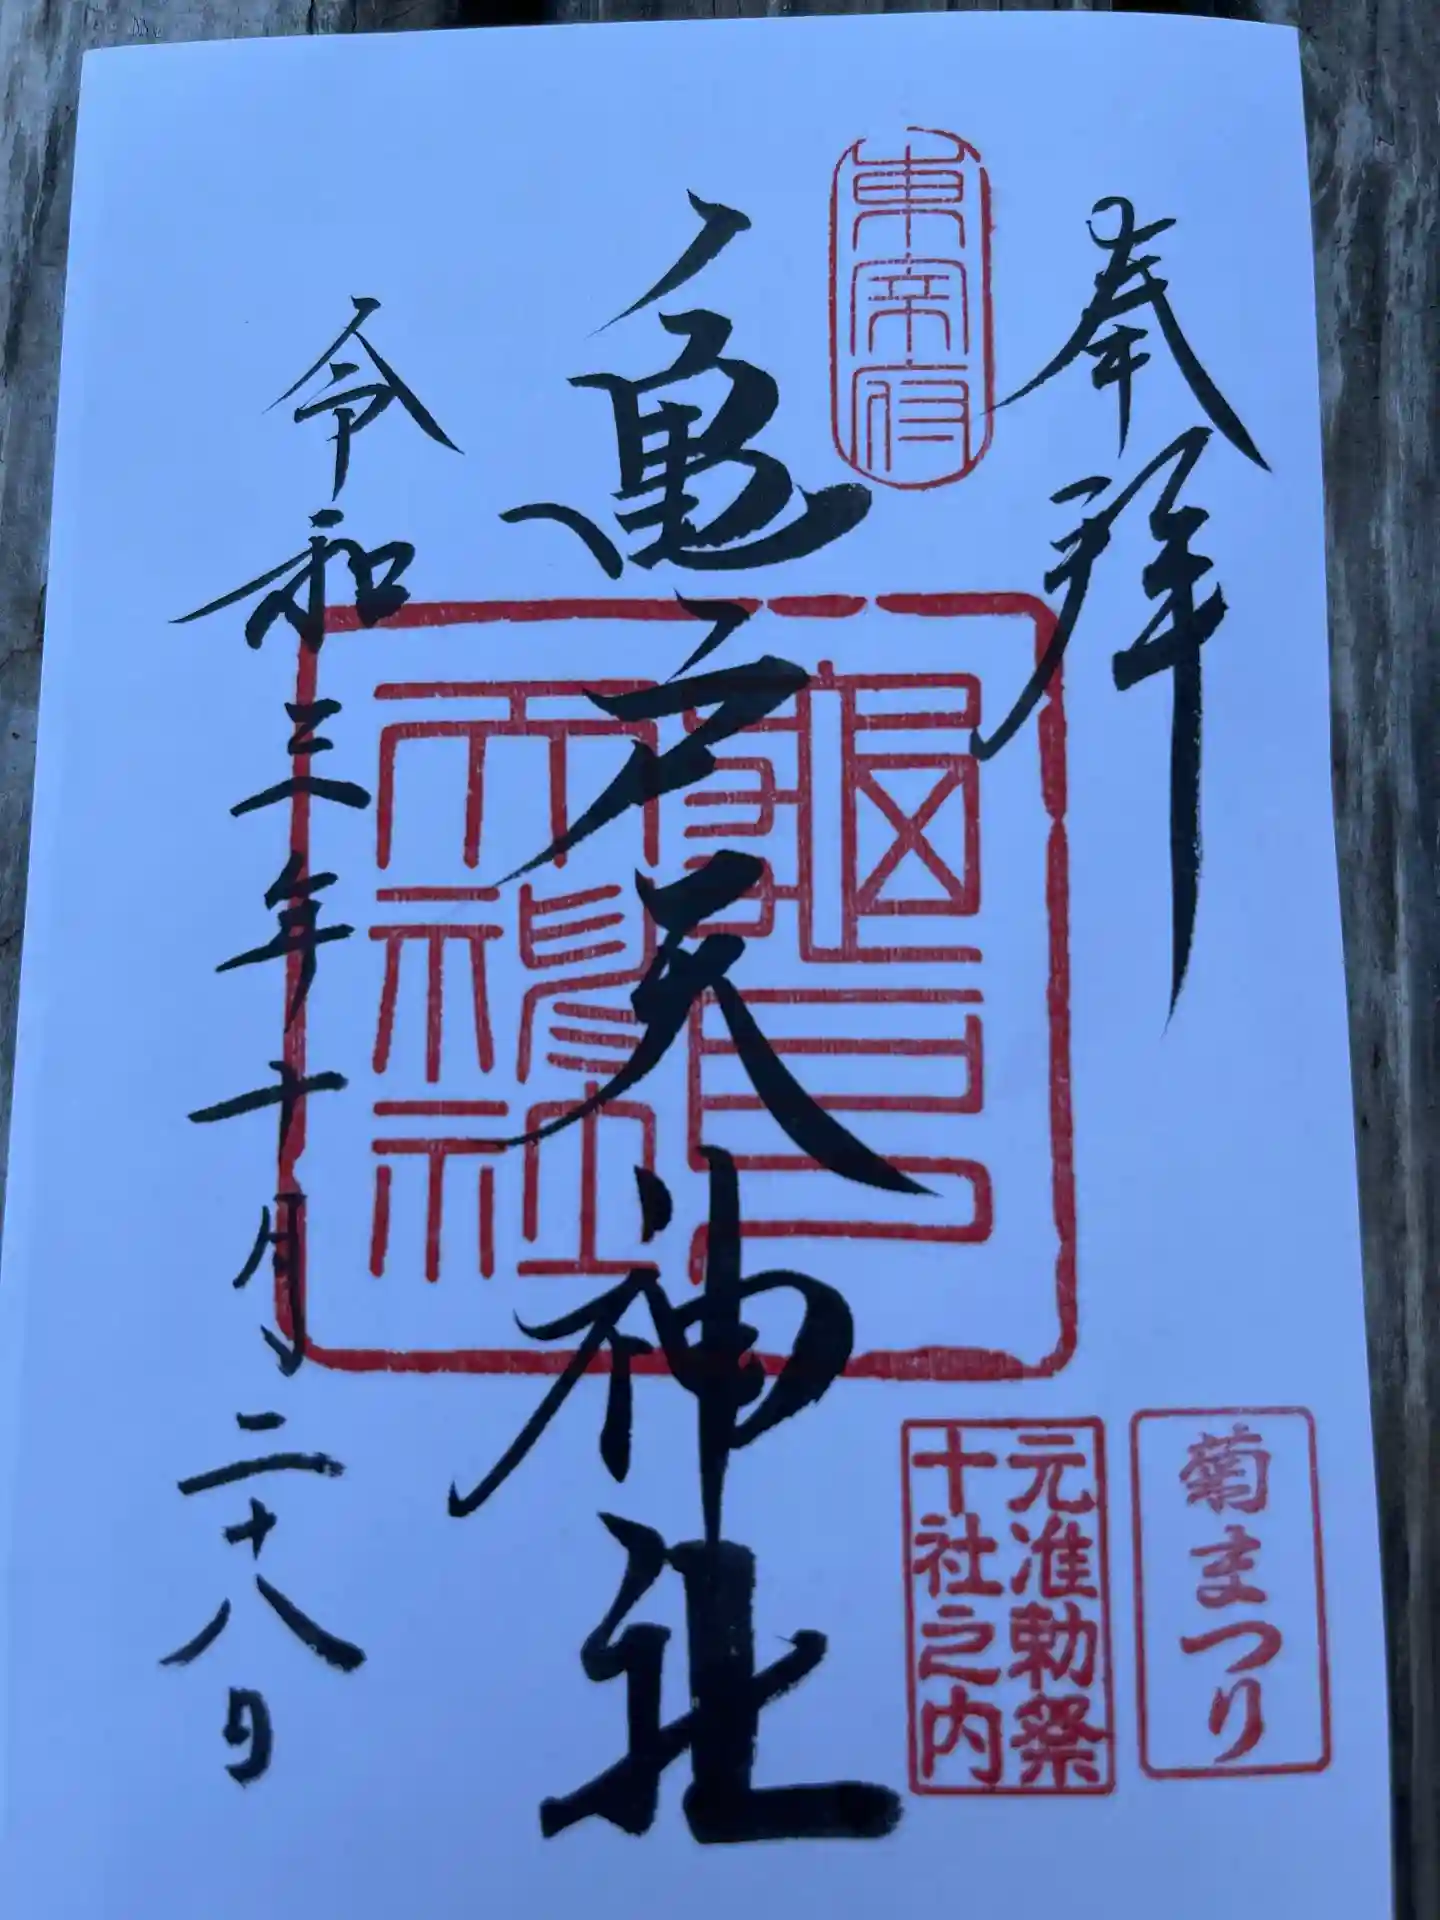 奉拝
東宰府
亀戸天神社
龜戸天神社
令和三年十月二十八日
菊まつり
元准勅祭
十社之内